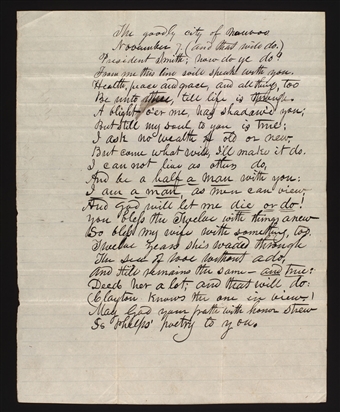 The goodly city of Nauvoo
November 7. (and that will do.)
President Smith; how do ye do?
From me this line will speak with you.
Health, peace and grace, and all things, too
Be unto thee, till life is through.
A blight o'er me, has shadow'd you;
But still my soul, to you is true;
I ask no wealth of old or new,
But come what will, I'll make it do.
I can not live as others do,
And be a half a man with you:
I am a man, as men can view,
And God will let me die or do!
You bless the Twelve with things anew
So bless my wife with something, too.
Twelve years she's waded through
The sea of love without ado,
And still remains the same - and true:
Deed her a lot, and that will do:
Clayton knows the one in view!
May God your path with honor strew
So Phelps' poetry to you.